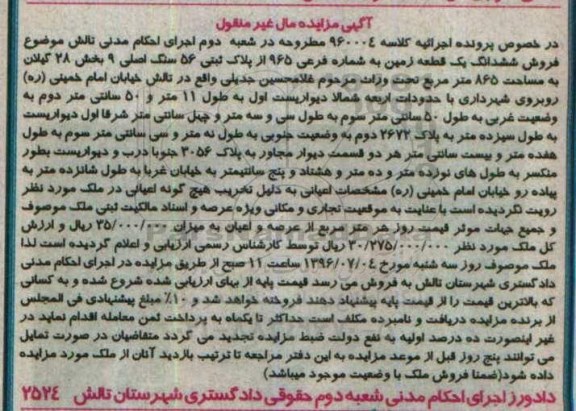 آگهی مزایده مال غیر منقول
در خصوص پرونده اجرائیه کلاسه ۹۶۰۰۰۴ مطروحه در شعبه دوم اجرای احکام مدنی تالش موضوع
فروش ششدانگ یک قطعه زمین به شماره فرعی ۹۶۵ از پلاک ثبتی ۵۶ سنگ اصلی ۹ بخش ۲۸ گیلان
به مساحت ۸۶۵ متر مربع تحت وراث مرحوم غلامحسین جدیلی واقع در تالش خیابان امام خمینی (ره)
روبروی شهرداری با حدودات اربعه شمالا دیواریست اول به طول ۱۱ متر و ۵۰ سانتی متر دوم به
وضعیت غربی به طول ۵۰ سانتی متر سوم به طول سی و سه متر و چهل سانتی متر شرقا اول دیواریست
به طول سیزده متر به پلاک ۲۶۷۲ دوم به وضعیت جنوبی به طول نه متر و سی سانتی متر سوم به طول
هفده متر و بیست سانتی متر هر دو قسمت دیوار مجاور به پلاک ۳۰۵۶ جنوبا درب و دیواریست بطور
منکسر به طول های نوزده متر و ده متر و هشتاد و پنج سانتیمتر به خیابان غربا به طول شانزده متر به
پیاده رو خیابان امام خمینی (ره) مشخصات اعیانی به دلیل تخریب هیچ گونه اعیانی در ملک مورد نظر
رویت نگردیده است با عنایت به موقعیت تجاری و مکانی ویژه عرصه و اسناد مالکیت ثبتی ملک موصوف
و جمیع جهات موثر قیمت روز هر متر مربع از عرصه و اعیان به میزان ۳۵/۰۰۰/۰۰۰ ریال و ارزش
کل ملک مورد نظر ۳۰/۲۷۵/۰۰۰/۰۰۰ ریال توسط کارشناس رسمی ارزیابی و اعلام گردیده است لذا
ملک موصوف روز سه شنبه مورخ ۱۳۹۶/۰۷/۰۴ ساعت ۱۱ صبح از طریق مزایده در اجرای احکام مدنی
دادگستری شهرستان تالش به فروش می رسد قیمت پایه از بهای ارزیابی شده شروع شده و به کسانی
که بالاترین قیمت را از قیمت پایه پیشنهاد دهند فروخته خواهد شد و ۱۰٪ مبلغ پیشنهادی فی المجلس
از برنده مزایده دریافت و نامبرده مکلف است حداکثر تا یکماه به پرداخت ثمن معامله اقدام نماید در
غیر اینصورت ده درصد اولیه به نفع دولت ضبط مزایده تجدید می گردد متقاضیان در صورت تمایل
می توانند پنج روز قبل از موعد مزایده به این دفتر مراجعه تا ترتیب بازدید آنان از ملک مورد مزایده
داده شود(ضمنا فروش ملک با وضعیت موجود میباشد)
دادورز اجرای احکام مدنی شعبه دوم حقوقی دادگستری شهرستان تالش ۲۵۲۴